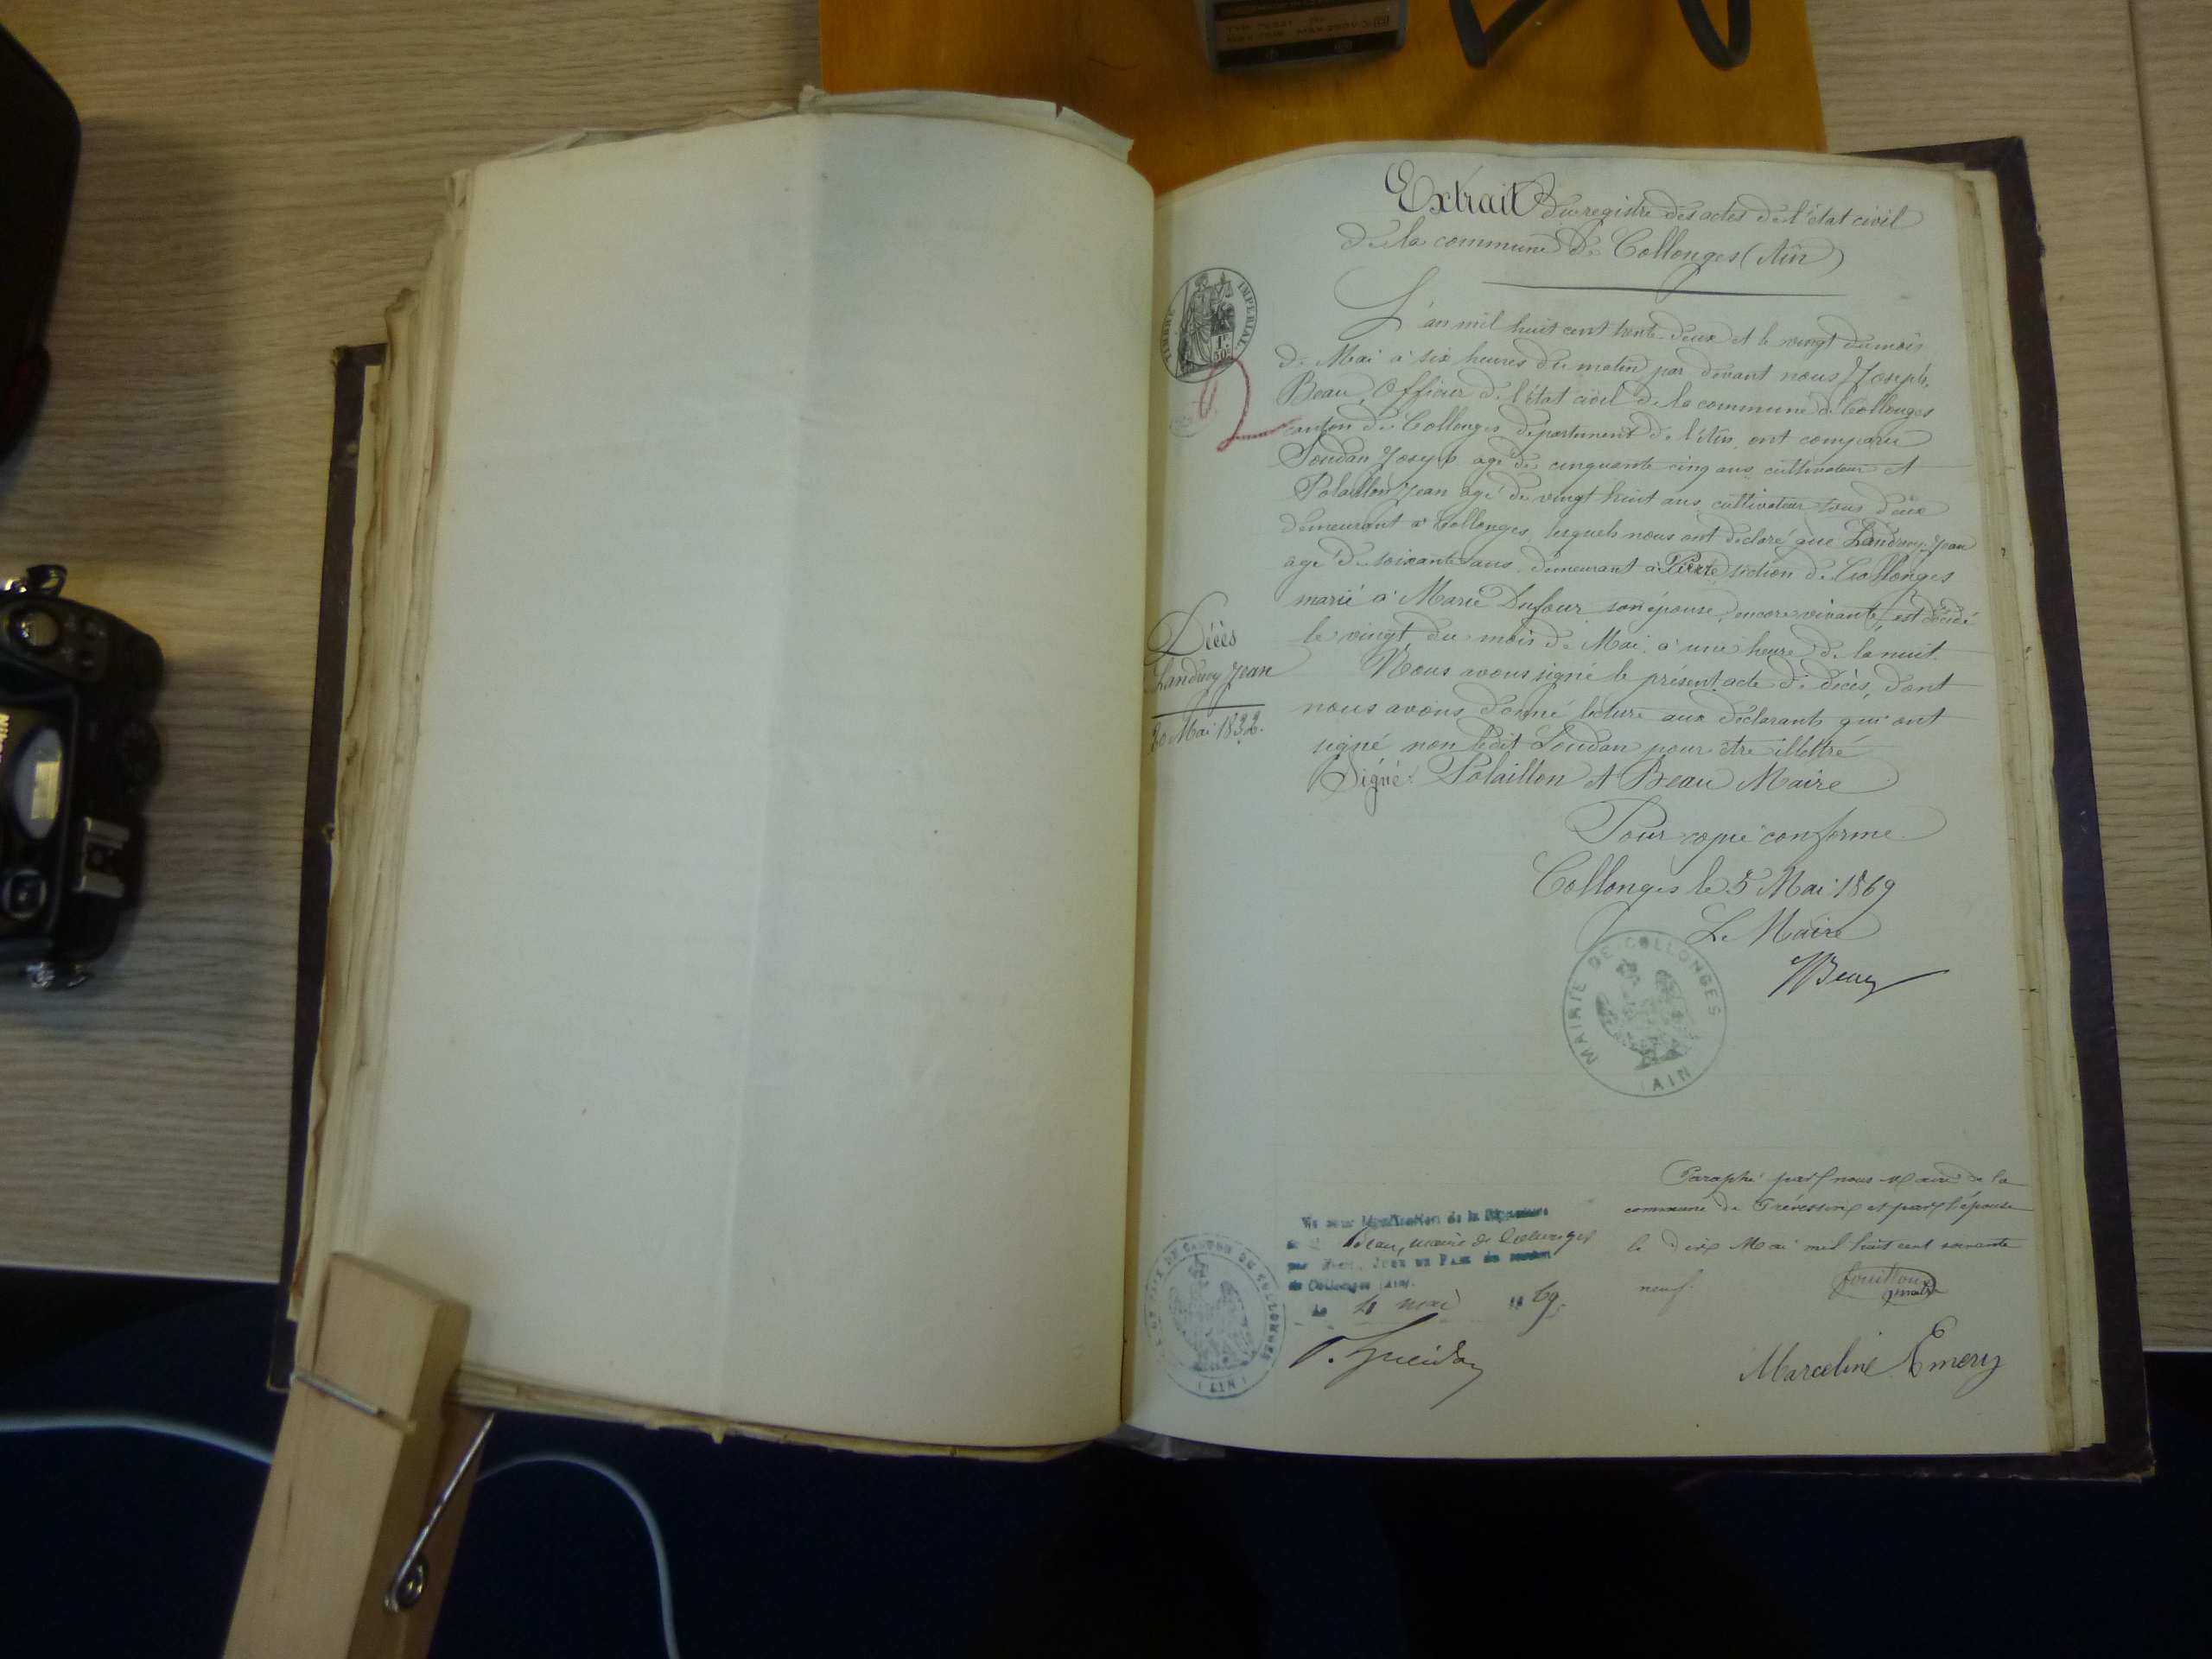 Extrait du registre des actes de l'état civil
de la commune de Collonges (Ain)
TIMBRE IMPERIAL
1f 50c
L'an mil huit cent trente deux et le vingt du mois
de Mai à six heures du matin par devant nous Joseph
Beau, Officier de l'état civil de la commune de Collonges
canton de Collonges, département de l'Ain, ont comparu
Soudan Joseph agé de cinquante cinq ans cultivateur et
Polaillon Jean agé de vingt huit ans, cultivateur tous deux
demeurant à Collonges, lesquels nous ont déclaré que Landry Jean
agé de soixante ans, demeurant à Pierre section de Collonges
marié à Marie Dufour son épouse encore vivante, est décédé
le vingt du mois de Mai, à une heure de la nuit.
Décès
Landry Jean
20 Mai 1832.
Nous avons signé le présent acte de décès, dont
nous avons donné lecture aux déclarants qui ont
signé non ledit Soudan pour être illettré
Signé: Polaillon et Beau Maire
Pour copie conforme
Collonges le 5 Mai 1869
Le Maire
MAIRIE DE COLLONGES
(AIN)
Paraphé par nous Maire de la
commune de Prévessin et par l'épouse
le dix Mai mil huit cent soixante
neuf.
Marceline Emery
Vu pour légalisation de la Signature
de M. Beau, maire de Collonges
par Nous, JUGE DE PAIX du canton
de Collonges (Ain).
Le mai 1869.
CANTON DE COLLONGES
(AIN)